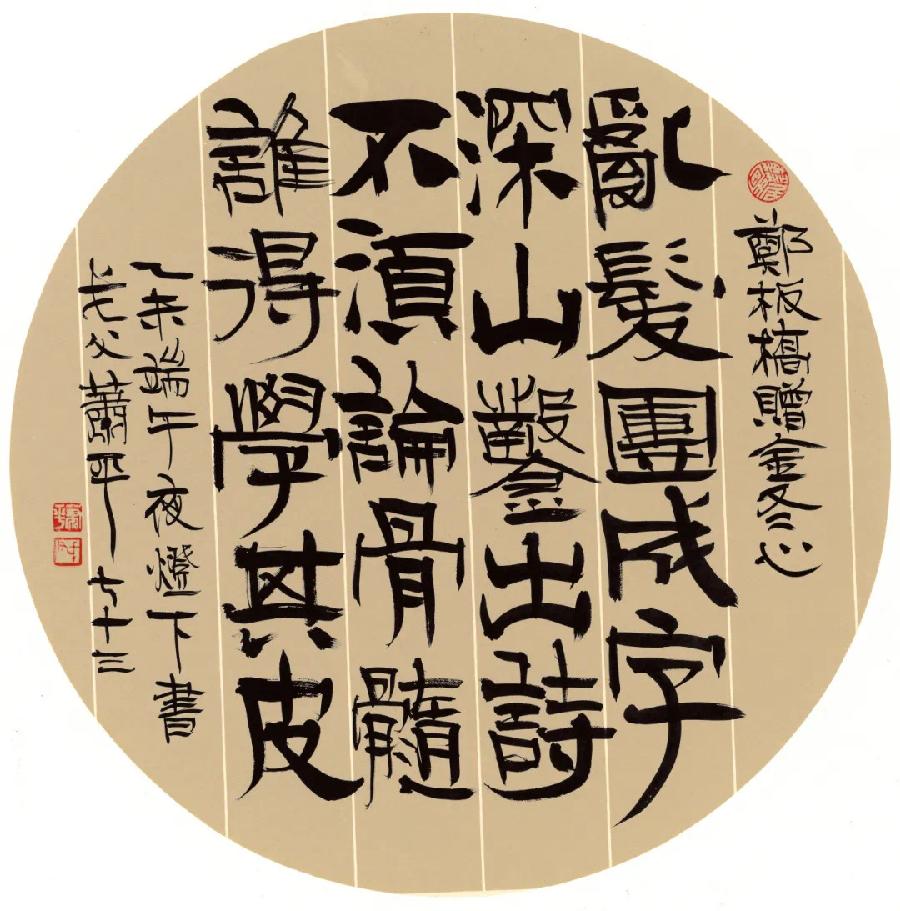 鄭板橋贈金冬心
亂髮團成字
深山鑿出詩
不須論骨髓
誰得學其皮
乙未端午夜燈下書
戈父蕭平七十三